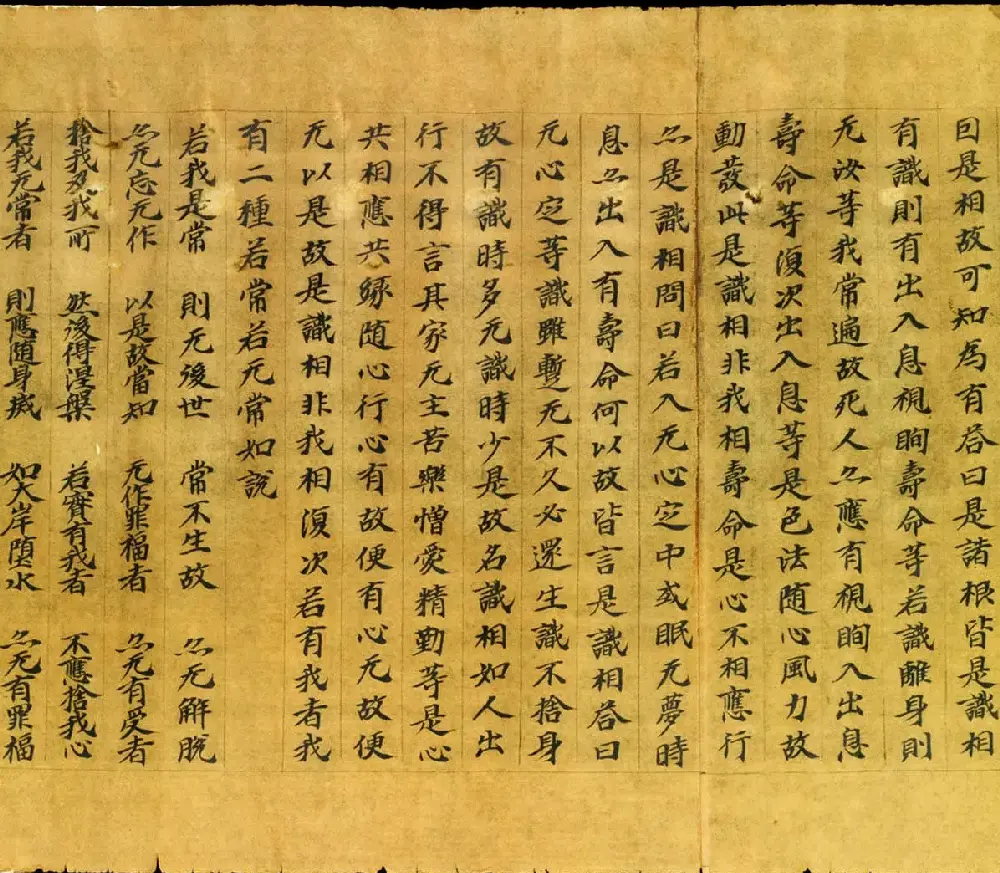 曰是相故可知為有荅曰是諸根皆是識相
有識則有出入息視眴壽命等若識離身則
无汝等我常遍故死人亦應有視眴入出息
壽命等復次出入息等是色法随心風力故
動發此是識相非我相壽命是心不相應行
亦是識相問曰若入无心定中或眠无夢時
息亦出入有壽命何以故皆言是識相荅曰
无心定等識雖暫无不久必還生識不捨身
故有識時多无識時少是故名識相如人出
行不得言其家无主苦樂憎愛精勤等是心
共相應共緣随心行心有故便有心无故便
无以是故是識相非我相復次若有我者我
有二種若常若无常如說
若我是常　則无後世　常不生故　亦无解脫
亦无忘无作　以是故當知　无作罪福者　亦无有受者
捨我及我所　然後得涅槃　若實有我者　不應捨我心
若我无常者　則應随身滅　如大岸墮水　亦无有罪福